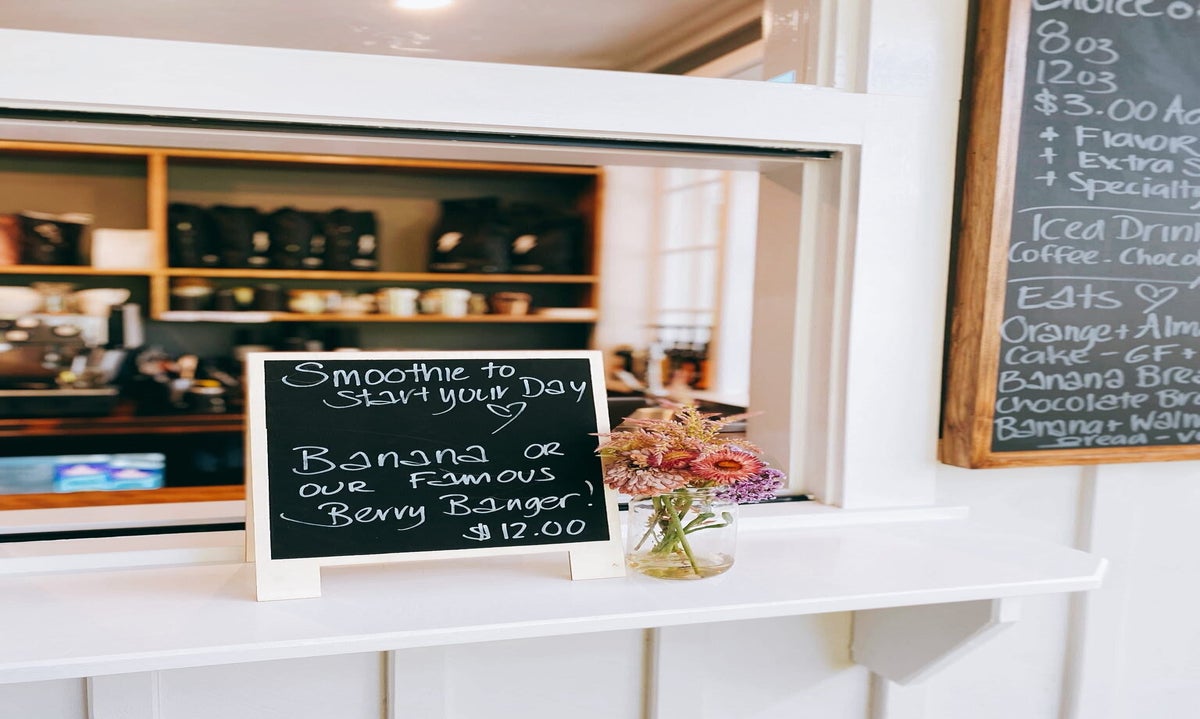 Smoothie to
Start your Day
Banana or
our Famous
Berry Banger!
$12.00
Choice o
8oz
12oz
$3.00
+ Flavor
+ Extra
+ Specialt
Iced Drin
Coffee - Choco
Eats
Orange + Alm
Cake - GF +
Banana Brea
Chocolate Br
Banana + Waln
Bread -